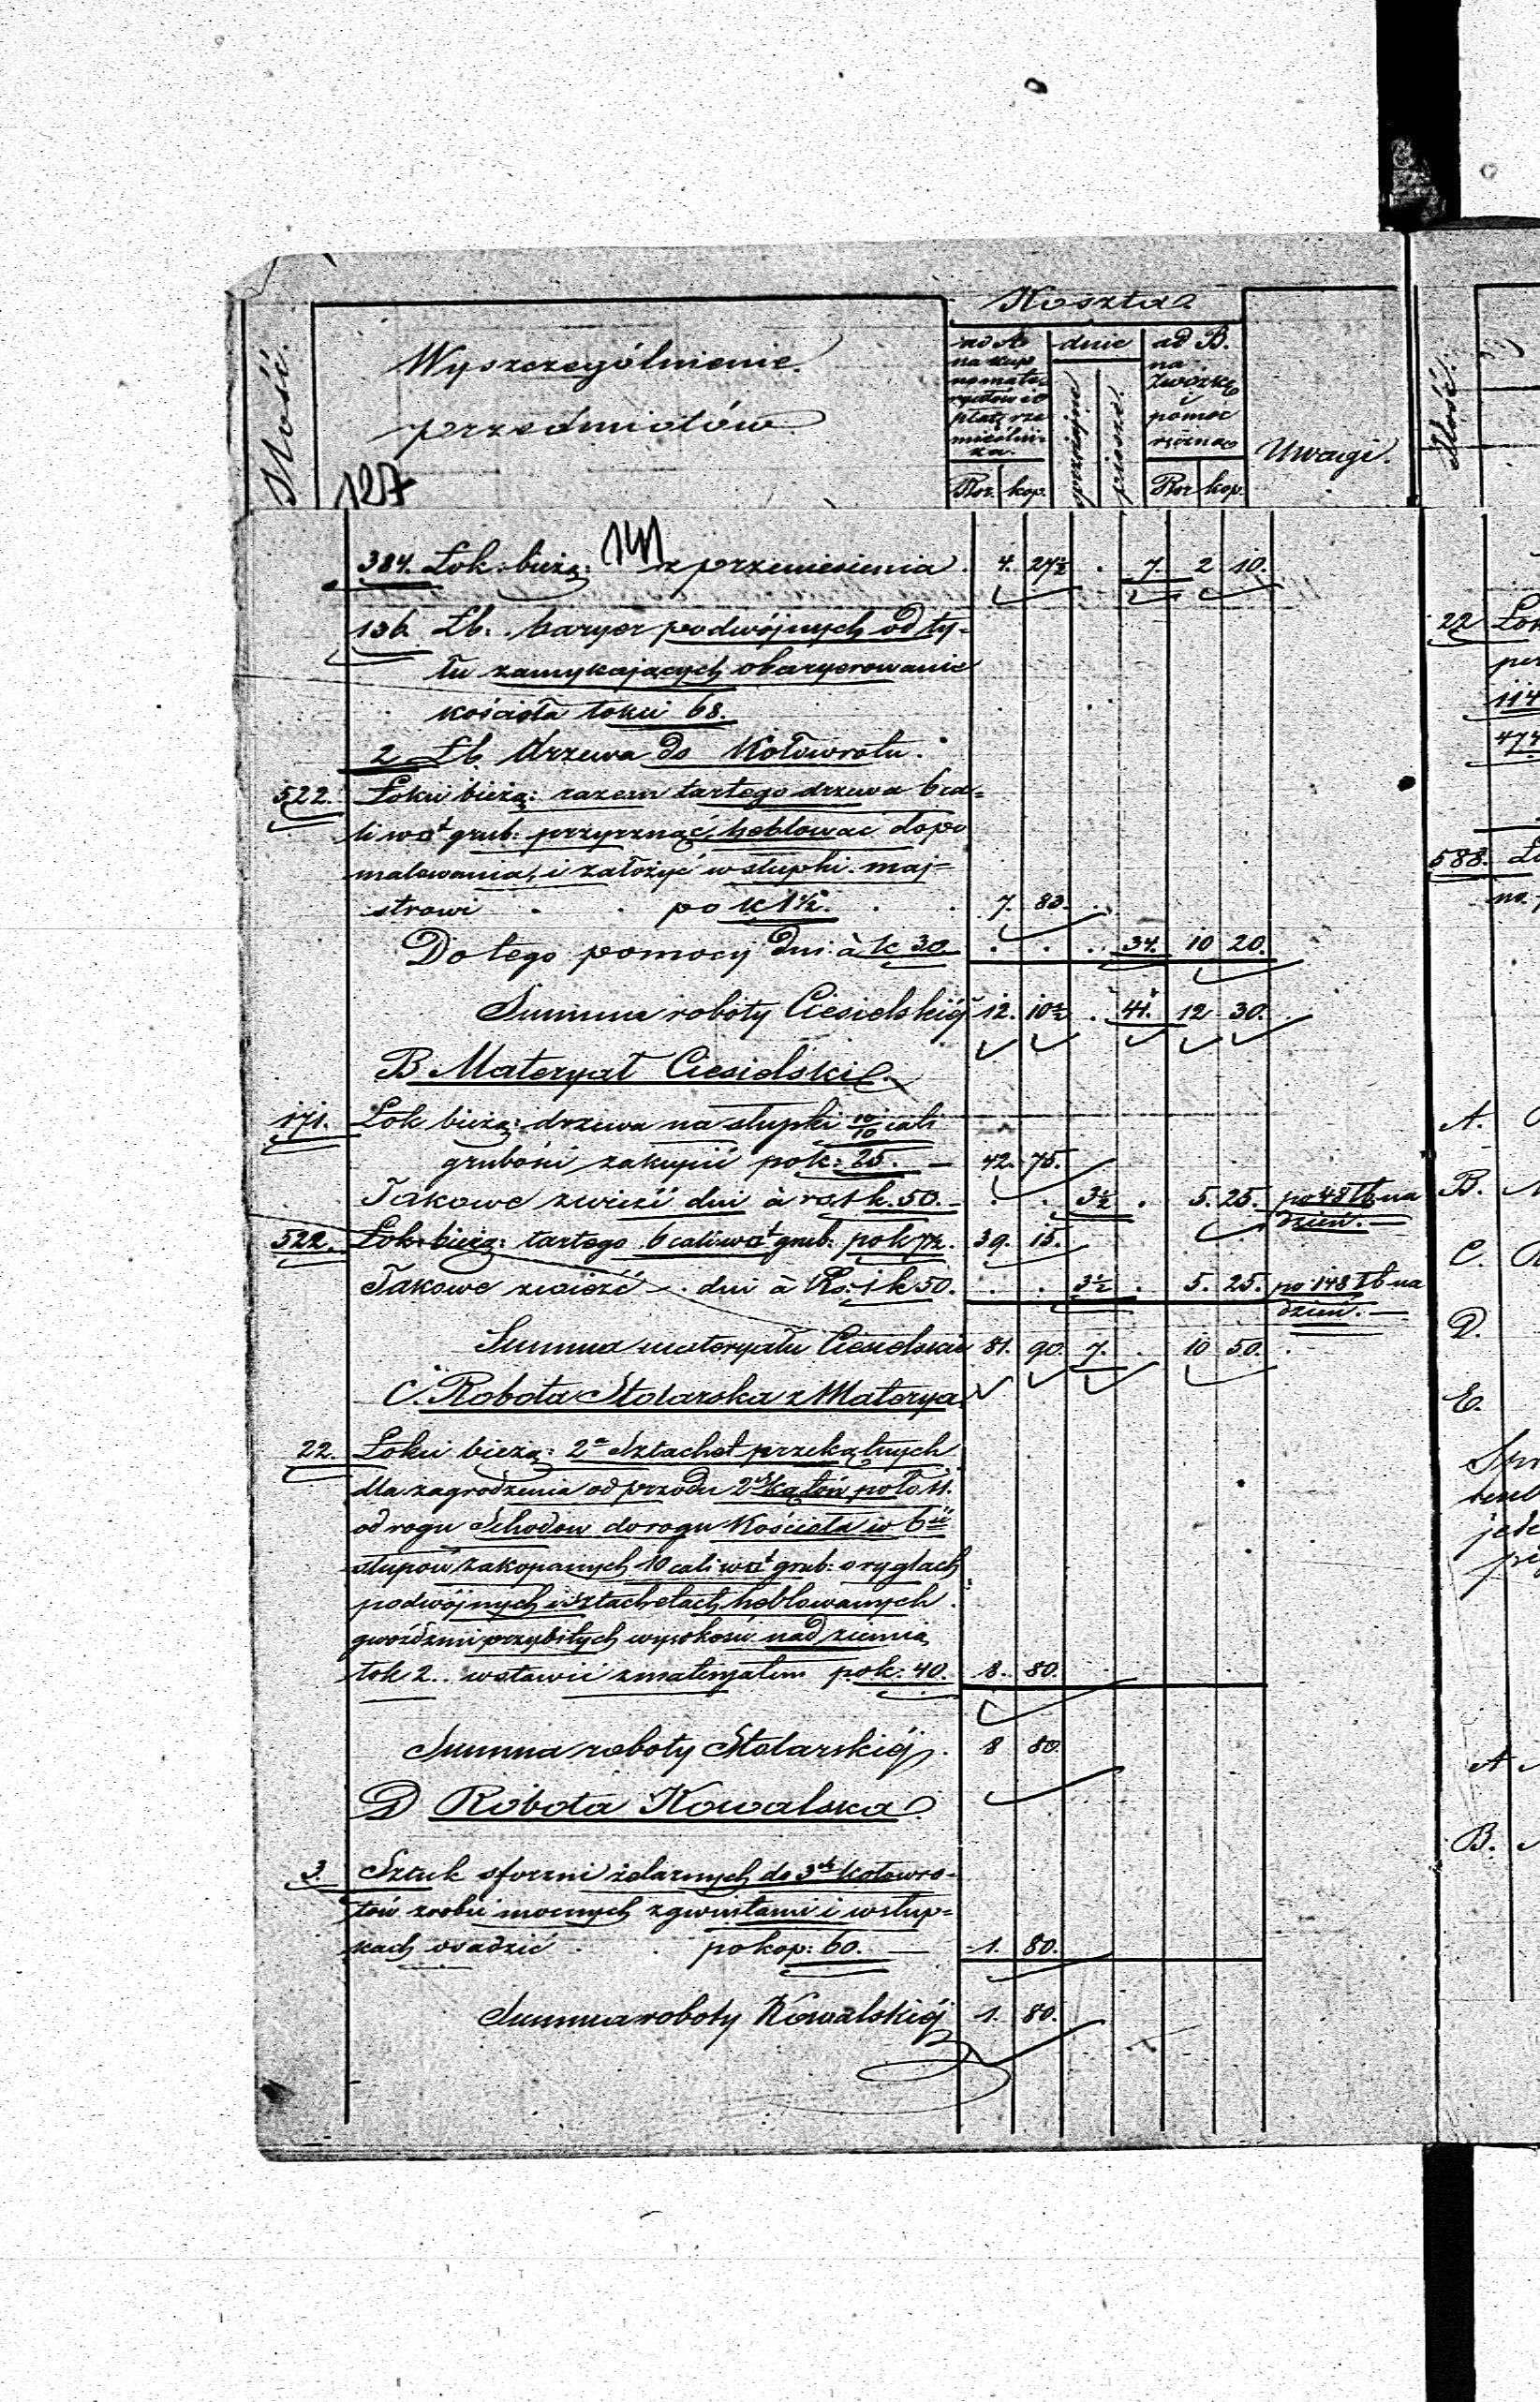 Ilość.
Wyszczególnienie
przedmiotów
Koszta
ad A
na kup
no mate-
ryałów i o
płatę rze
mieślni-
ka.
Rsr. kop.
dnie
sprzężajne
piesze.
ad B.
na
zwózkę
i
pomoc
ręczną
Rsr kop.
Uwagi.
127
141
384. Łok: bieżą: z przeniesienia. 4. 27½ . 7. 2 10.
136. Łb. baryer podwójnych od ty-
łu zamykających obaryerowanie
kościoła łokci 68.
2 Łb. drzewa do Kołowrotu.
522. Łokci bieżą: razem tartego drzewa 6 ca-
li w □t grub: przyrznąć, heblować do po
malowania, i założyć w słupki. maj-
strowi . . po k 1½. . . 7. 83.
Do tego pomocy dni à k 30. . . . 34. 10 20.
Summa roboty Ciesielskiéj 12. 10½ . 41. 12 30.
B Materyał Ciesielski
171. Łok bieżą: drzewa na słupki 10/10 cali
grubości zakupić po k: 25. — 42. 75.
Takowe zwieźć dni à rs. 1 k. 50. — . . 3½ . 5. 25. po 48 łb na
dzień. —
522. Łok bieżą: tartego 6 cali w □t grub: po k 7½. 39. 15.
Takowe zwieźć — . dni à Rs: 1 k 50. . . 3½ . 5. 25. po 148 łb na
dzień. —
Summa materyału Ciesielskie 81. 90. 7. . 10 50. .
C. Robota Stolarska z Materya.
22. Łokci bieżą: 2a Sztachet przekątnych
dla zagrodzenia od przodu 2ch kątów po ło 11.
od rogu Schodów do rogu Kościoła w 6iu
słupów zakopanych 10 cali w □t grub: o ryglach
podwójnych i sztachetach heblowanych.
gwoźdźmi przybitych wysokości nad ziemią
łok 2.. wstawić z materyałem po k. 40. 8. 80.
Summa roboty Stolarskiéj. 8 80.
D Robota Kowalska
3. Sztuk sforzni żelaznych do 3ch kołowro-
tów zrobić mocnych z gwintami i w słup-
kach osadzić . . po kop: 60. — 1. 80.
Summa roboty Kowalskiéj 1. 80.
Ilość.
22 Łok
114
474
588.
na
A.
B.
C.
D.
E.
A
B.